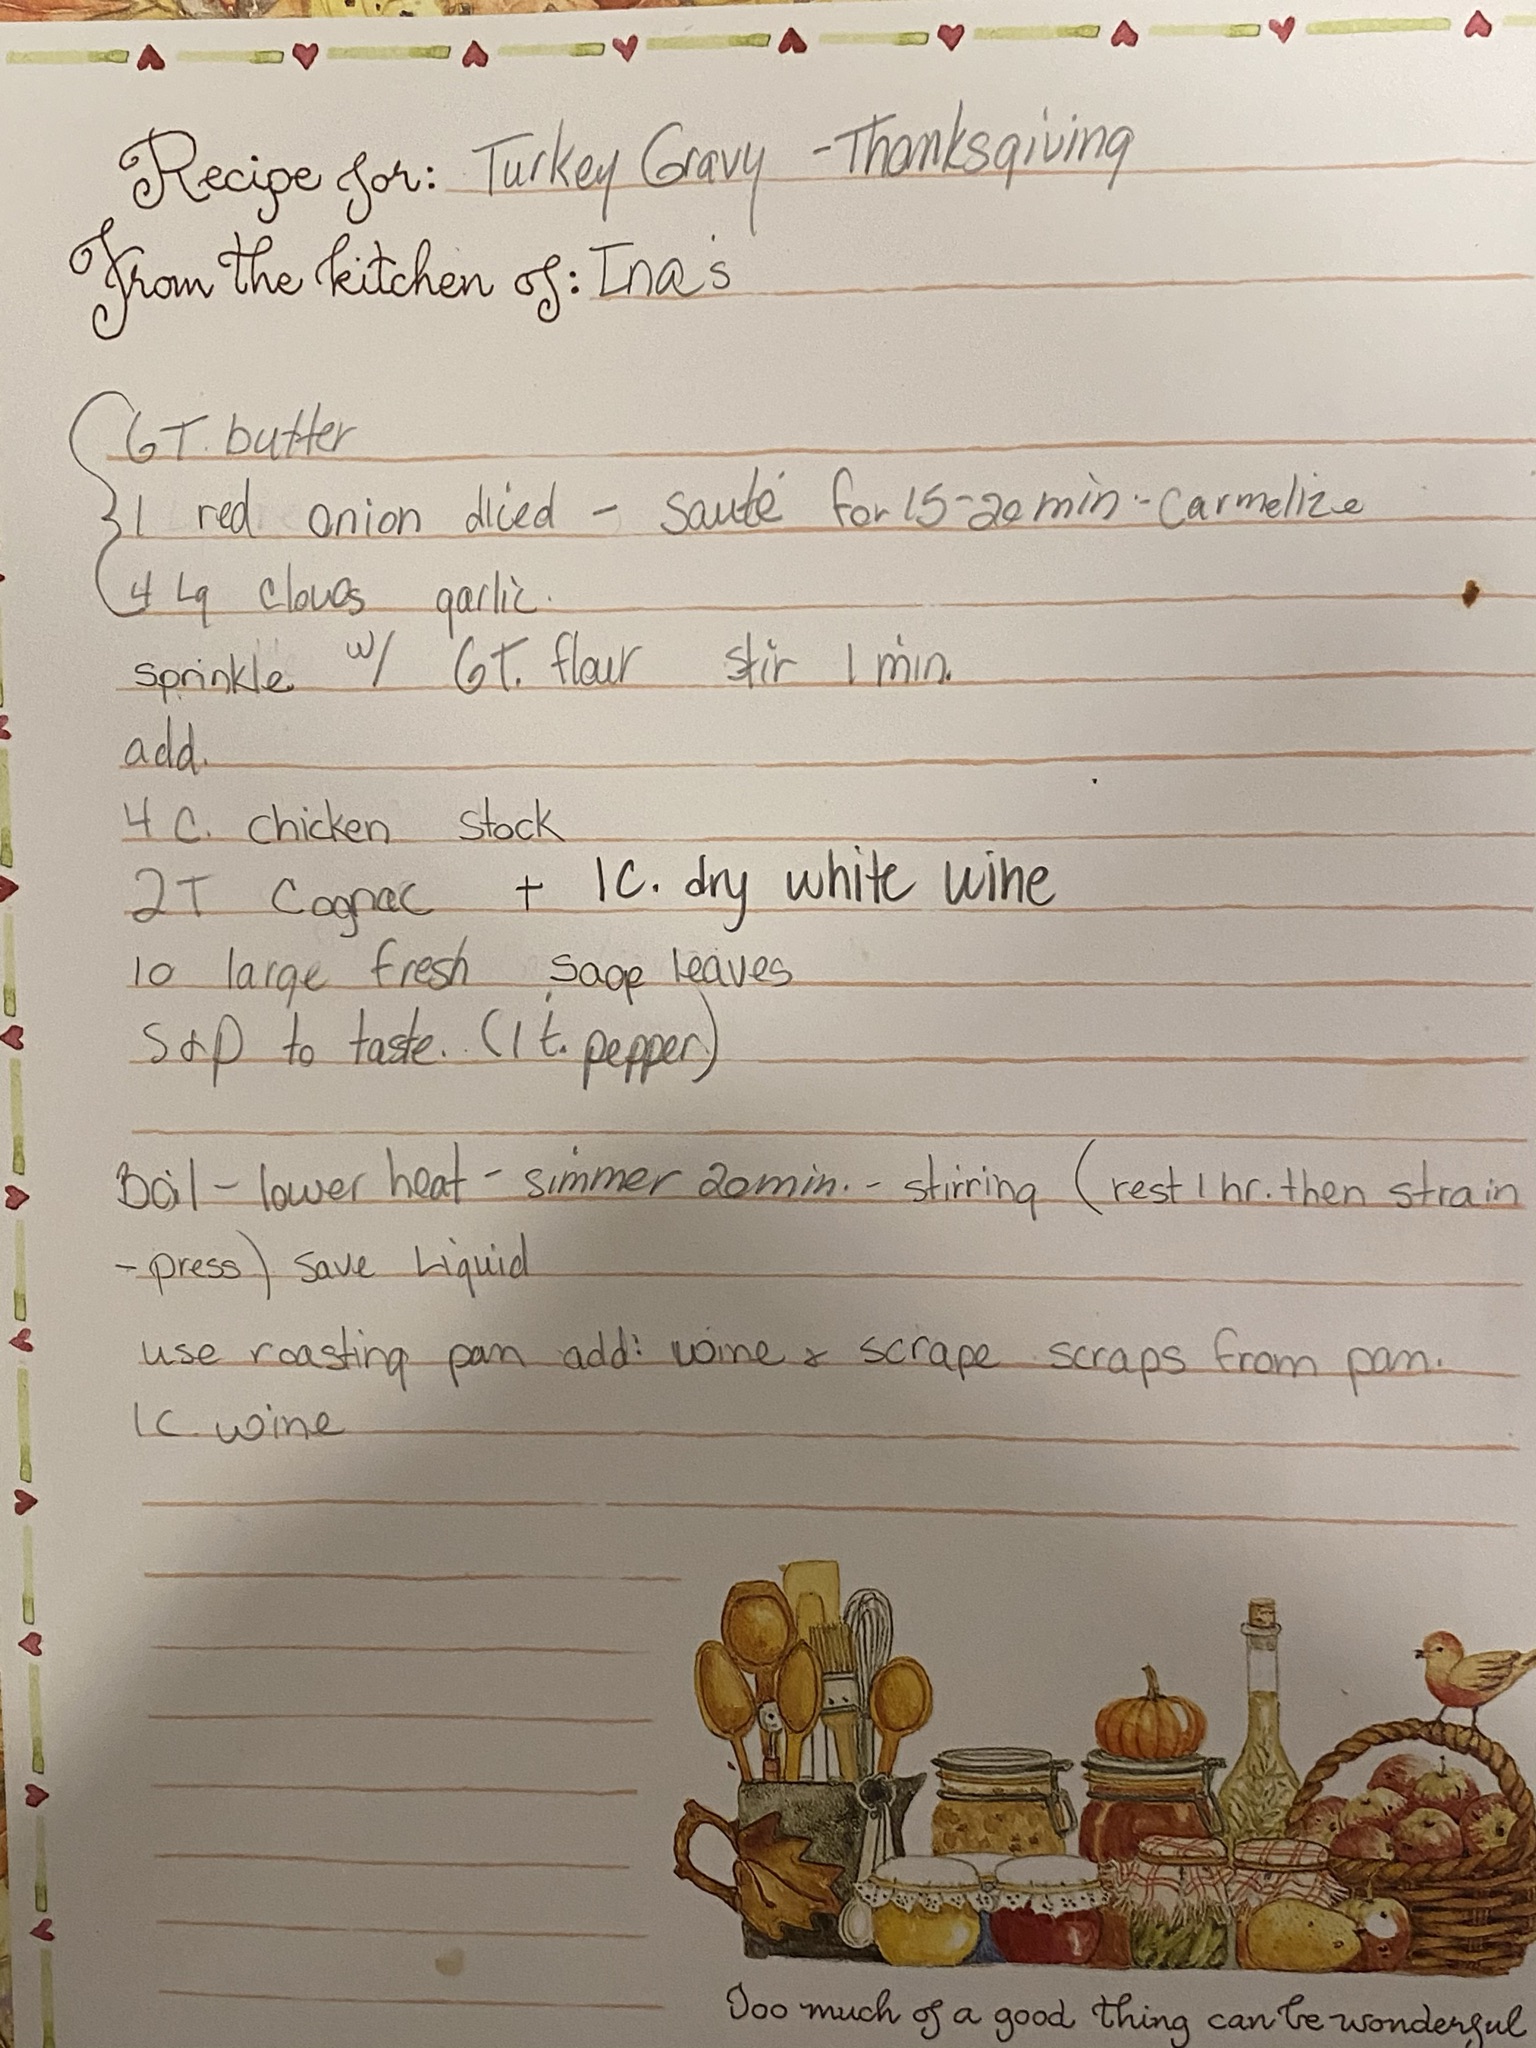 Recipe for: Turkey Gravy - Thanksgiving
From the kitchen of: Ina's
6T. butter
1 red onion diced - sauté for 15-20 min. - Carmelize
4 Lg cloves garlic.
sprinkle w/ 6T. flour stir 1 min.
add.
4 C. chicken stock
2T Cognac + 1C. dry white wine
10 large fresh sage leaves
S & P to taste. (1 t. pepper)
Boil - lower heat - simmer 20 min. - stirring (rest 1 hr. then strain
- press) save Liquid
use roasting pan add: wine & scrape scraps from pan.
1C. wine
Too much of a good thing can be wonderful